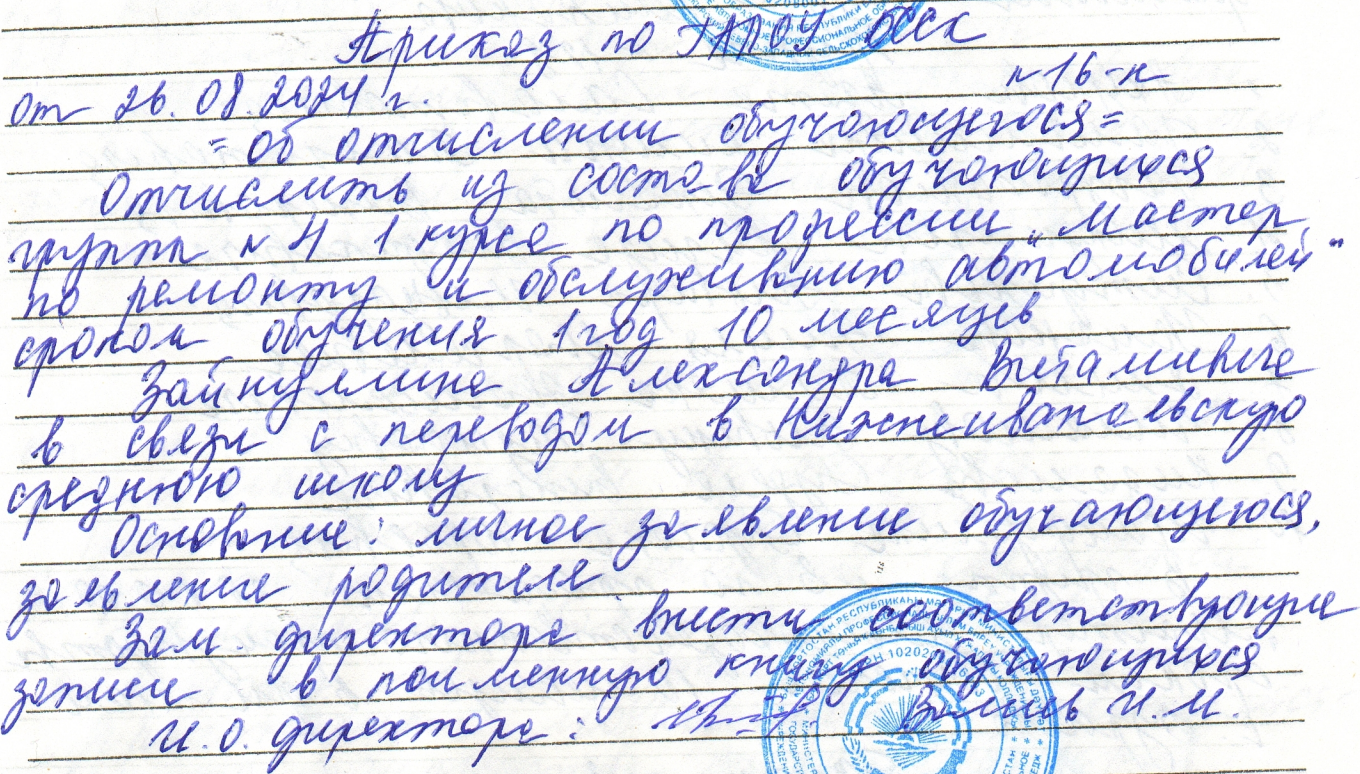 Приказ по ГАПОУ
от 26.08.2024 г. №16-к
=об отчислении обучающегося=
Отчислить из состава обучающихся
группы №4 1 курса по профессии "Мастер
по ремонту и обслуживанию автомобилей"
сроком обучения 1 год 10 месяцев
Зайнуллина Александра
в связи с переводом в
среднюю школу
Основание: личное заявление обучающегося,
заявление родителя
Зам. директора внести соответствующие
записи в поименную книгу обучающихся
И.о. директора: И.М.